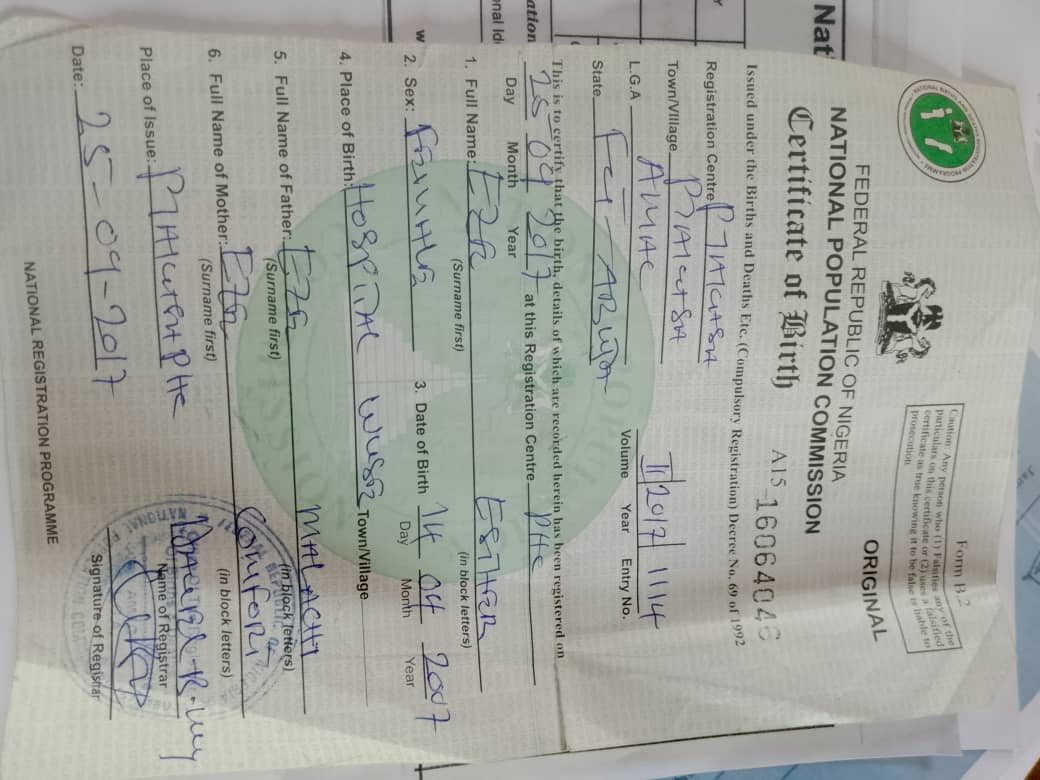 Form B 2
Caution: Any person who (1) Falsifies any of the
particulars on this certificate or (2) uses a falsified
certificate as true knowing it to be false is liable to
prosecution
FEDERAL REPUBLIC OF NIGERIA
ORIGINAL
NATIONAL POPULATION COMMISSION
Certificate of Birth
A15-16064046
Issued under the Births and Deaths Etc. (Compulsory Registration) Decree No. 69 of 1992
Registration Centre
Town/Village
L.G.A AMAC
II 2017 1114
Volume Year Entry No.
State FCT - ABUJA
This is to certify that the birth, details of which are recorded herein has been registered on
25 09 2017 at this Registration Centre PHC
Day Month Year
1. Full Name: EZE ESTHER
(Surname first) (in block letters)
2. Sex: FEMALE 3. Date of Birth 14 04 2007
Day Month Year
4. Place of Birth: HOSPITAL WUSE Town/Village
5. Full Name of Father: EZE MALACHI
(Surname first) (in block letters)
6. Full Name of Mother: EZE COMFORT
(Surname first) (in block letters)
Place of Issue: PHC
Name of Registrar
Date: 25-09-2017
Signature of Registrar
NATIONAL REGISTRATION PROGRAMME
Nat